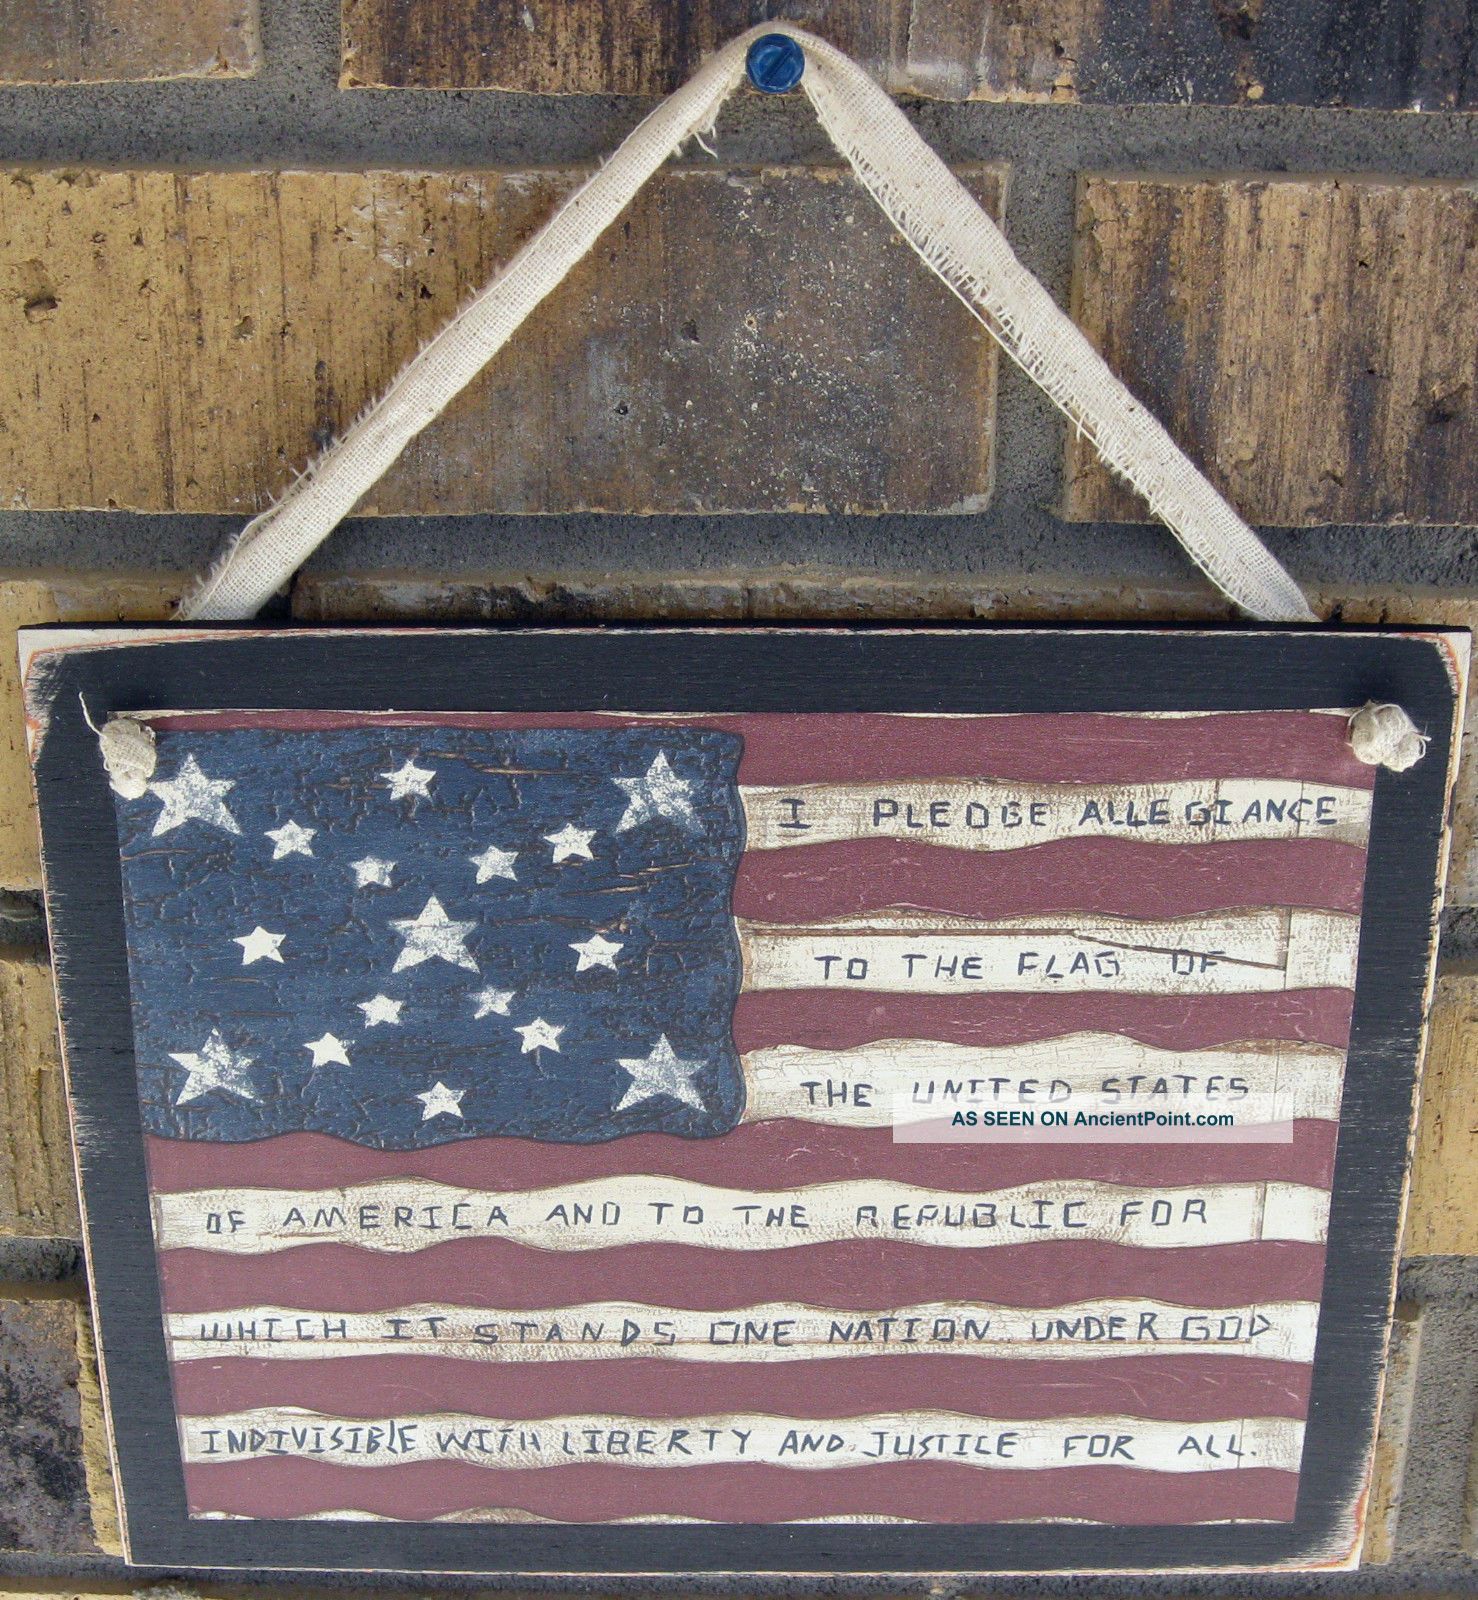 I PLEDGE ALLEGIANCE
TO THE FLAG OF
THE UNITED STATES
AS SEEN ON AncientPoint.com
OF AMERICA AND TO THE REPUBLIC FOR
WHICH IT STANDS ONE NATION UNDER GOD
INDIVISIBLE WITH LIBERTY AND JUSTICE FOR ALL.